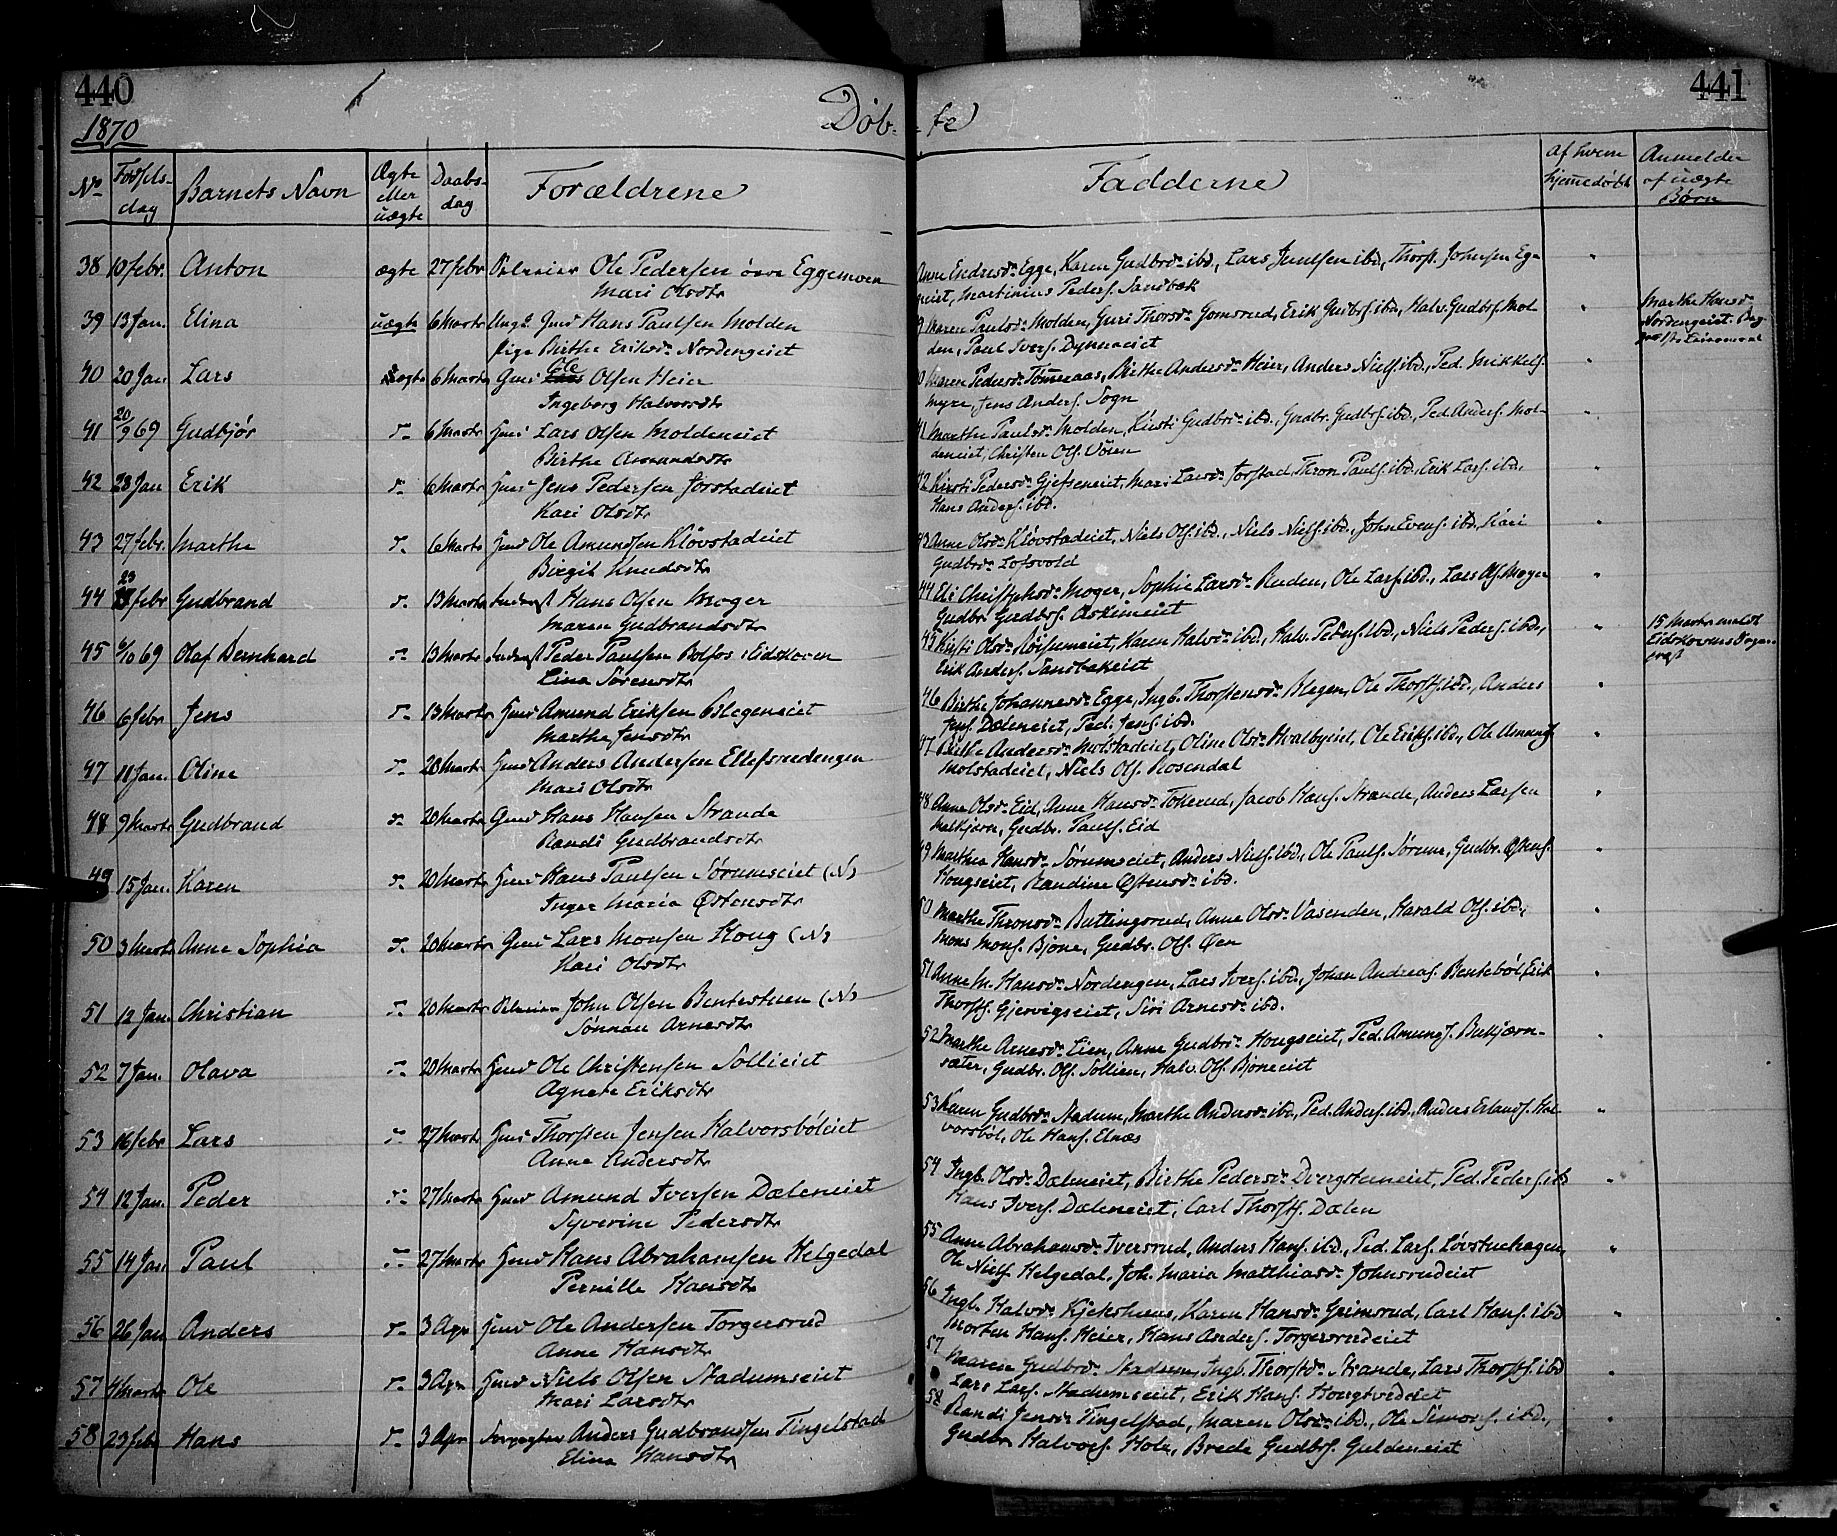 440
441
1870
Døb-
-te
No
Fødsels-
dag
Barnets Navn
Ægte
eller
uægte
Daabs-
dag
Forældrene
Fadderne
af hvem
hjemedøbt
Anmeldte
af uægte
Børn
38 10 febr. Anton ægte 27 febr Ole Pedersen Eggemoen
Mari Olsdtr
Anne Endresdr Egge, Karen Gudbrdr ibd., Lars Juulsen ibd., Thorst. Johnsen Eg-
eiet, Martinius Peders. Sandbæk
39 13 Jan. Elina uægte 6 Marts Ungk. Hans Paulsen Molden
Pige Birthe Eriksdr Nordengeiet
Maren Paulsdr Molden, Guri Thorsdr Gomsrud, Erik Gudbrs. ibd., Halv. Gudbrs. Mol-
den, Paul Ivers. Dynneeiet
Marthe Hansdr
Nordengeiet
40 20 Jan Lars ægte 6 Marts Ole Olsen Heier
Ingeborg Halvorsdtr
Maren Pedersdr Tømeraas, Birthe Andersdr Heier, Anders Niels. ibd., Ped. Mikkels.
Myre, Jens Anders. Sogn
41 20/9 69 Gudbjør 6 Marts Lars Olsen Moldeneiet
Birthe Amundsdtr
41 Marthe Paulsdr Molden, Kirsti Gudbrdr ibd., Gudbr. Gudbrs. ibd., Ped. Anders. Mol-
deneiet, Christen Ols. Vøien
42 28 Jan Erik 6 Marts Jens Pedersen Jorstadeiet
Kari Olsdtr
42 Kirsti Pedersdr Gjefseneiet, Mari Larsdr Jorstad, Thron Pauls. ibd., Erik Lars. ibd.,
Hans Anders. ibd.
43 27 febr. Marthe 6 Marts Ole Amundsen Kløvstadeiet
Birgit Knudsdtr
43 Anne Olsdr Kløvstadeiet, Niels Ols. ibd., Niels Niels. ibd., John Evens. ibd., Kari
Gudbrdr Lofsvold
44 23 febr Gudbrand 13 Marts Hans Olsen Moger
Maren Gudbrandsdtr
44 Eli Christophsdr Moger, Sophie Larsdr Ruden, Ole Lars. ibd., Lars Ols. Moger
Gudbr. Gudbrs. Askimeiet
45 6/10 69 Olaf Bernhard 13 Marts Peder Paulsen Bolfos i Eidskoven
Lina Sørensdtr
45 Kirsti Olsdr Røisumeiet, Karen Halvdr ibd., Halv. Peders. ibd., Niels Peders. ibd.,
Erik Anders. Sandbakeiet
15 Marts anmeldt
Eidskovens Sogne-
præst
46 6 febr Jens 13 Marts Amund Eriksen Blegeneiet
Marthe Jensdtr
46 Birthe Johannesdr Egge, Ingb. Thorstensdr Blegen, Ole Thorsts. ibd., Anders
Jens. Dæleneiet, Ped. Jens. ibd.
47 11 Jan. Oline 20 Marts Anders Andersen Ellefsrudengen
Mari Olsdtr
47 Birthe Andersdr Molstadeiet, Oline Olsdr Hvalbyeiet, Ole Eriks. ibd., Ole Amunds.
Molstadeiet, Niels Ols. Rosendal
48 9 Marts Gudbrand 20 Marts Hans Hansen Strande
Randi Gudbrandsdtr
48 Anne Olsdr Eid, Anne Hansdr Tokerud, Jacob Hans. Strande, Anders Larsen
Melkjorn, Gudbr. Pauls. Eid
49 15 Jan. Karen 20 Marts Hans Paulsen Sørumseiet (N)
Inger Maria Østensdtr
Marthea Hansdr Sørumseiet, Anders Niels. ibd., Ole Pauls. Sørum, Gudbr. Østens.
Hougseiet, Randine Østensdr ibd.
50 3 Marts Anne Sophia 20 Marts Lars Monsen Houg (N)
Kari Olsdtr
Marthe Thronsdr Buttingsrud, Anne Olsdr Vasenden, Harald Ols. ibd.,
Mons Mons. Bjone, Gudbr. Ols. Øen
51 12 Jan. Christian 20 Marts John Olsen Bentestuen (N)
Sønnøu Arnesdtr
51 Anne M. Hansdr Nordengen, Lars Ivers. ibd., Johan Andreas. Bentebøl, Erik
Thorsts. Gjervigseiet, Siri Arnesdr ibd.
52 7 Jan. Olava 20 Marts Ole Christensen Sollieiet
Agnete Eriksdtr
52 Marthe Arnesdr Lien, Anne Gudbrdr Hougseiet, Ped. Amunds. Bukjærn-
sæter, Gudbr. Ols. Sollien, Halv. Ols. Bjoneeiet
53 16 febr Lars 27 Marts Thorsten Jensen Halvorsbøleiet
Anne Andersdtr
53 Karen Gudbrdr Stadum, Marthe Andersdr ibd., Ped. Anders. ibd., Anders Erlands. Hal-
vorsbøl, Ole Hans. Elnæs
54 12 Jan. Peder 27 Marts Amund Iversen Dæleneiet
Syverine Pedersdtr
54 Ingb. Olsdr Dæleneiet, Birthe Pedersdr Dvergsteneiet, Ped. Peders. ibd
Hans Ivers. Dæleneiet, Carl Thorsts. Dælen
55 14 Jan Paul 27 Marts Hans Abrahamsen Helgedal
Pernille Hansdtr
55 Anne Abrahamsdr Iversrud, Anders Hans. ibd., Ped. Lars. Løvstuehagen,
Ole Niels. Helgedal, Joh. Maria Matthiasdr Johnsrudeiet
56 26 Jan Anders 3 Apr Ole Andersen Torgersrud
Anne Hansdtr
56 Ingb. Halvdr Kjekshuus, Karen Hansdr Grimsrud, Carl Hans. ibd
Morten Hans. Heier, Hans Anders. Torgersrudeiet
57 4 Marts Ole 3 Apr Niels Olsen Stadumseiet
Mari Larsdtr
57 Maren Gudbrdr Stadum, Ingb. Thorstdr Strande, Lars Thorsts. ibd
Lars Lars. Stadumseiet, Erik Hans. Hougtvedeiet
58 23 febr Hans 3 Apr Anders Gudbrandsen Tingelstad
Elina Hansdtr
58 Randi Jensdr Tingelstad, Maren Olsdr ibd., Ole Simons. ibd.,
Gudbr Halvors. Hole, Brede Gudbrs. Guldeneiet